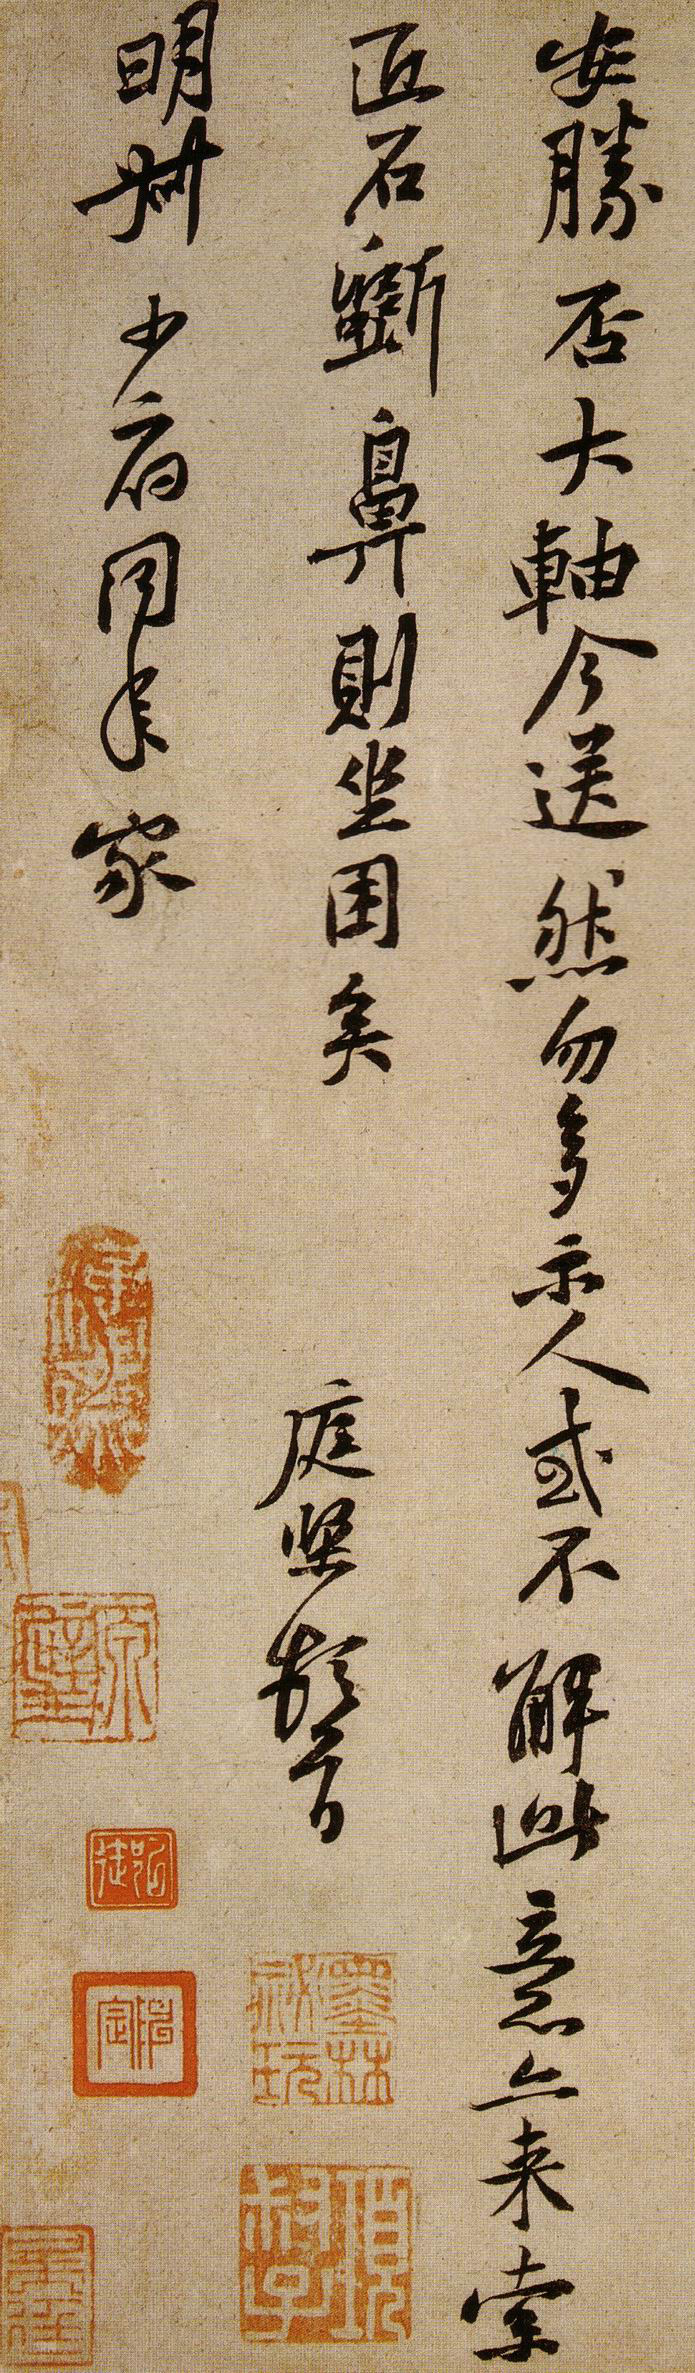 安勝否大軸今送然勿多示人或不解此意亦来索
匠石斵鼻則坐困矣
庭堅頓首
明叔少府同年家
墨林祕玩
項叔子